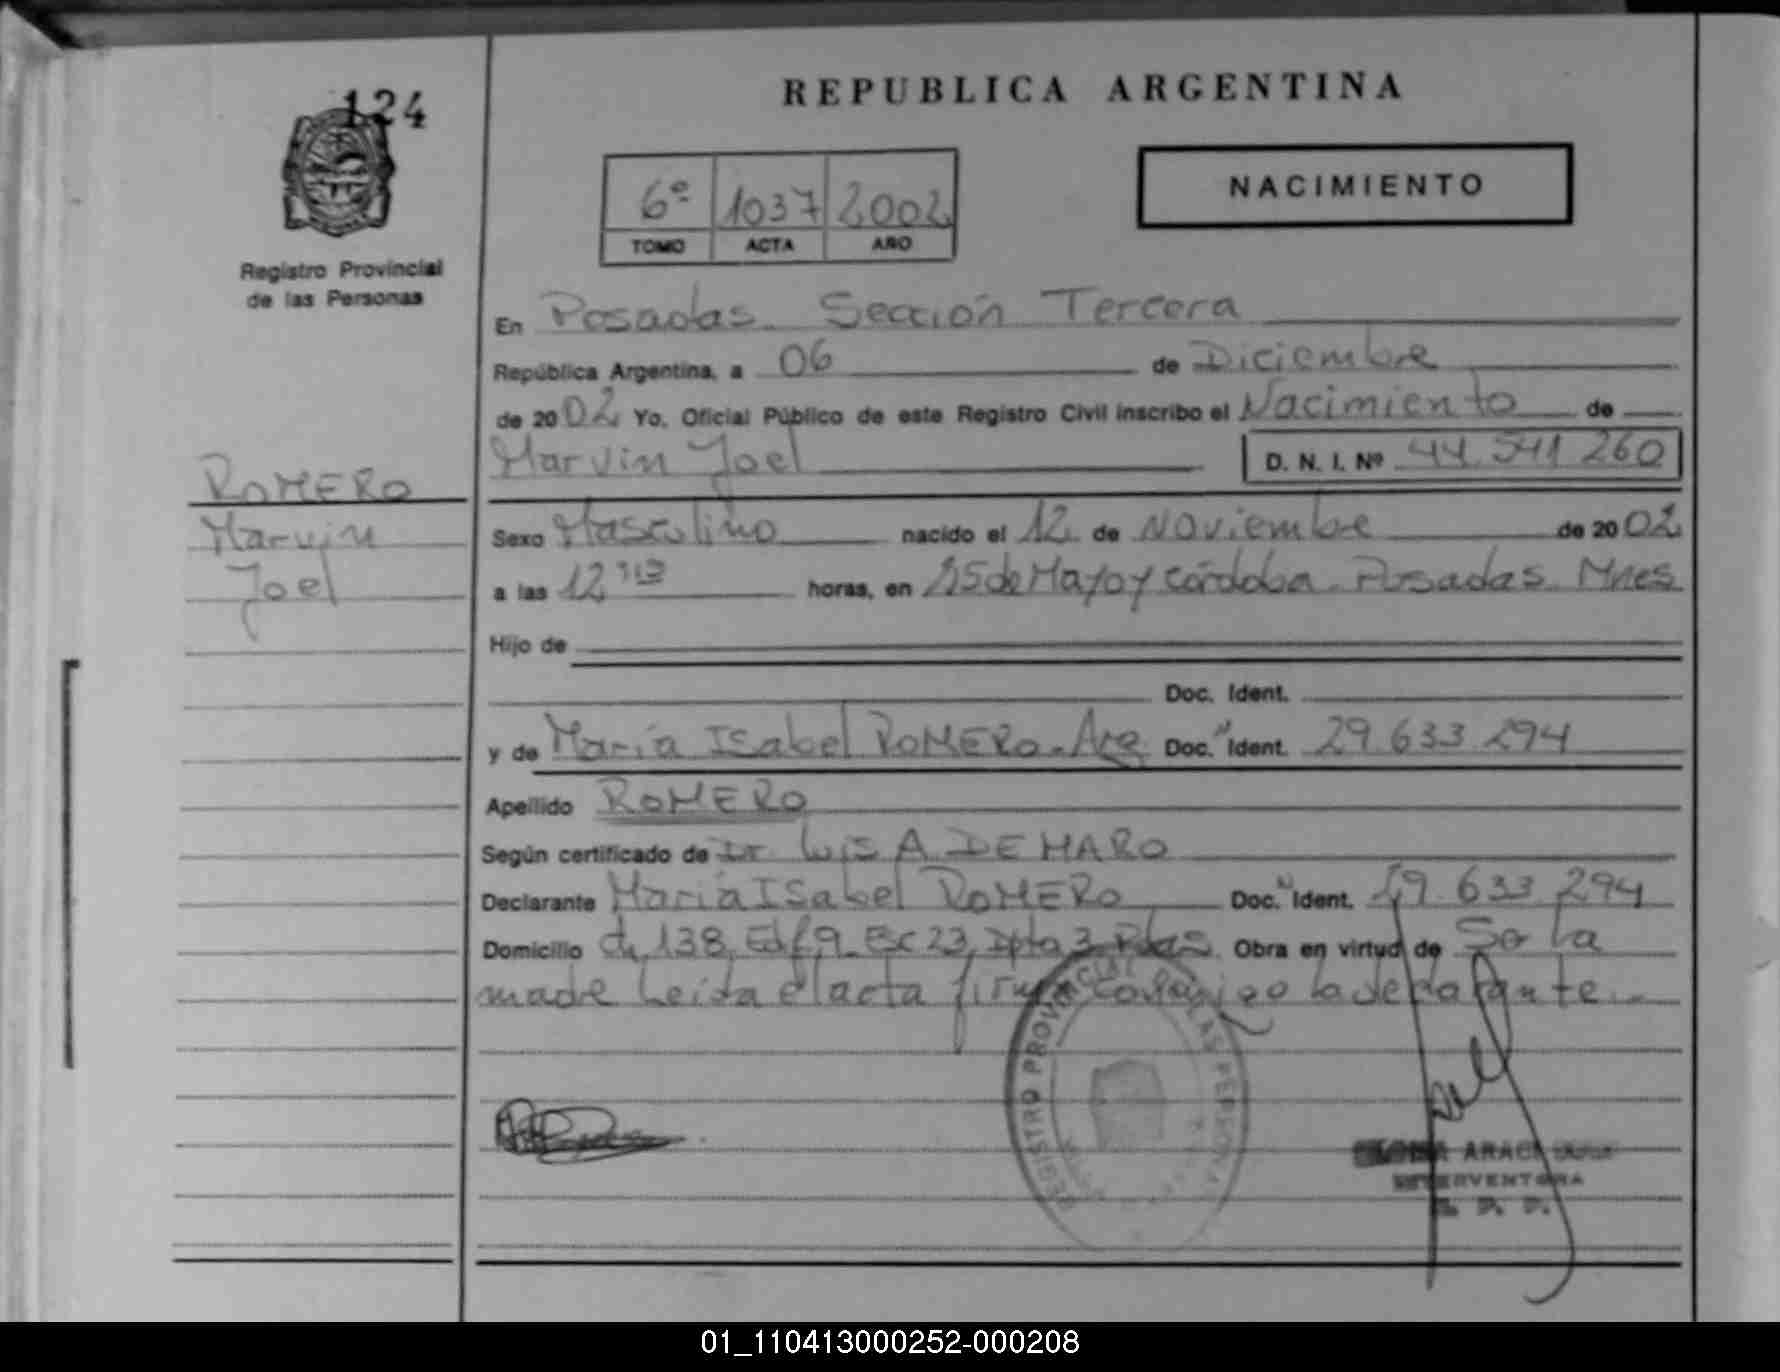 124
REPUBLICA ARGENTINA
6º 1037 2002
TOMO ACTA AÑO
NACIMIENTO
Registro Provincial
de las Personas
En Posadas. Sección Tercera
República Argentina, a 06 de Diciembre
de 2002 Yo, Oficial Público de este Registro Civil inscribo el Nacimiento de
Marvin Joel D. N. I. Nº 44.541 260
ROMERO
Marvin
Joel
Sexo Masculino nacido el 12 de Noviembre de 2002
a las 12 horas, en 25 de Mayo y Córdoba. Posadas. Mnes
Hijo de
Doc. Ident.
y de María Isabel ROMERO. Arg. Doc. Ident. 29.633.294
Apellido ROMERO
Según certificado de Dr. Luis A. DE HARO
Declarante María Isabel ROMERO Doc. Ident. 29.633.294
Domicilio Ch 138, Edf 9. Esc 23, Dpto 3. Pdas. Obra en virtud de Ser la
madre Leida el acta firma conmigo la declarante..
REGISTRO PROVINCIAL DE LAS PERSONAS
INTERVENTORA
R. P. P.
01_110413000252-000208